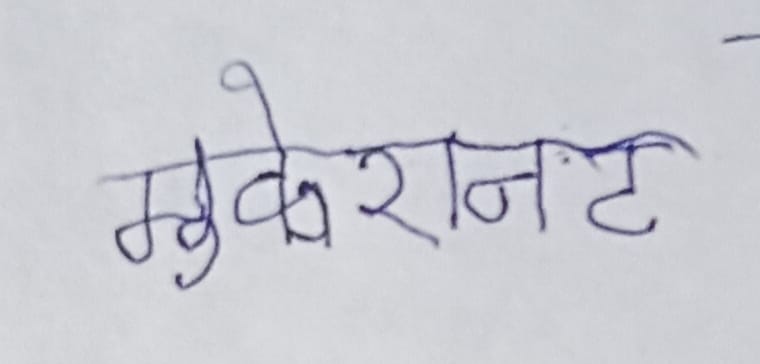 मुकेशनट